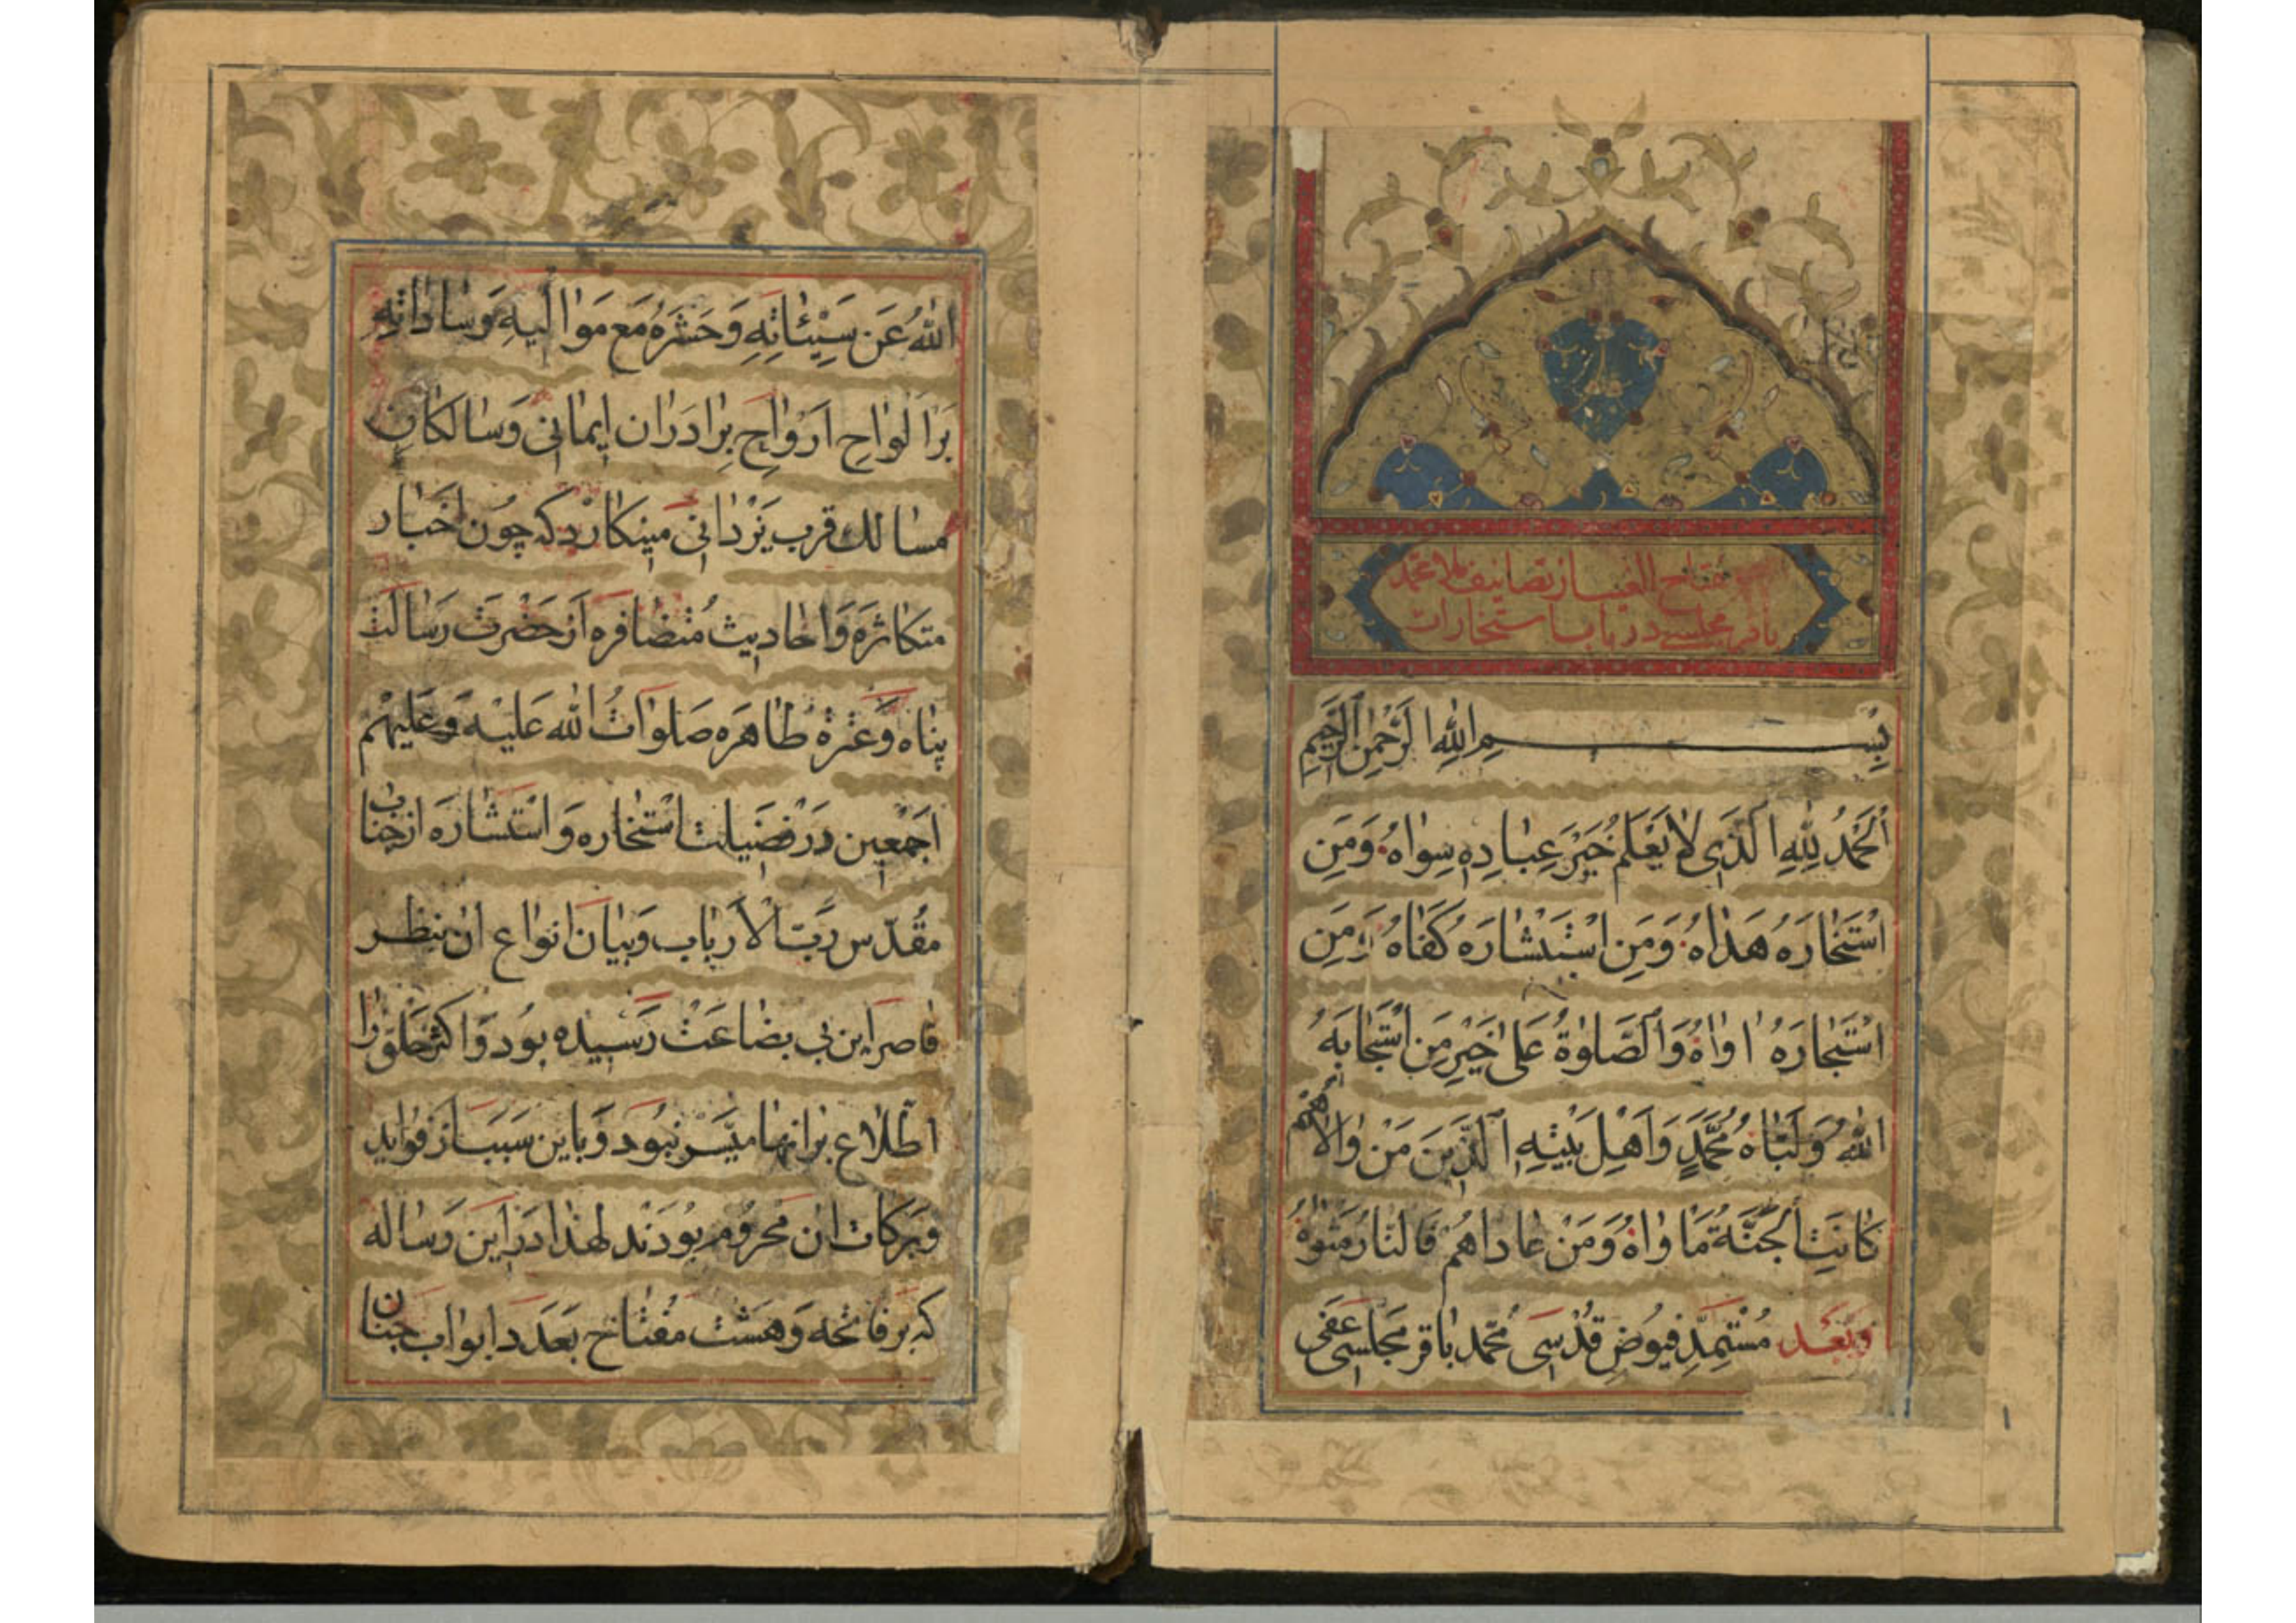 مفتاح الغیب از تصانیف ملا محمد
باقر مجلسے در باب استخارات
بِسْمِ اللهِ الرَّحْمٰنِ الرَّحِيمِ
اَلْحَمْدُ لِلّٰهِ الَّذِى لَا يَعْلَمُ خَيْرَ عِبَادِهِ سِوَاهُ وَمَنِ
اسْتَخَارَهُ هَدَاهُ وَمَنِ اسْتَشَارَهُ كَفَاهُ وَمَنِ
اسْتَجَارَهُ اوَاهُ وَالصَّلٰوةُ عَلٰى خَيْرِ مَنِ اسْتَجَابَهُ
اللهُ وَلَبَّاهُ مُحَمَّدٍ وَاَهْلِ بَيْتِهِ الَّذِينَ مَنْ وَالَاهُمْ
كَانَتِ الْجَنَّةُ مَاوَاهُ وَمَنْ عَادَاهُمْ فَالنَّارُ مَثْوَاهُ
وَبَعْد مُسْتَمِدِّ فيُوضِ قُدْسِى مُحَمَّد بَاقِر مَجلِسى عَفَى
اللهُ عَن سَيِّئَاتِهِ وَحَشَرَهُ مَع مَوَالِيهِ وَسَادَاتِهِ
بَرالواحِ اَرْوَاحِ بِرَادَرَان اِيمانى وَسالكان
مسالك قرب يَزْدَانى مينكارد كه چُون اَخبَار
متكاثره وَاحاديث مُتضافره اَز حَضْرَت رِسَالَت
پناه وَعترة طاهَره صَلَوَاتُ الله عَليه وَعَليهم
اجمعين دَر فضيلت استخاره وَاستشاره از جناب
مقدّس رَبّ الاَرباب وَبيان انواع ان بنظر
قاصر اين بى بضاعَتْ رَسيده بود وَاكثر خلق را
اطلاع بر انها ميَسر نبود وَباين سبب از فوايد
وبركات ان محرُوم بودند لهذا در اين رساله
كه بر فاتحه وَهشت مفتاح بعَدد ابواب جنان